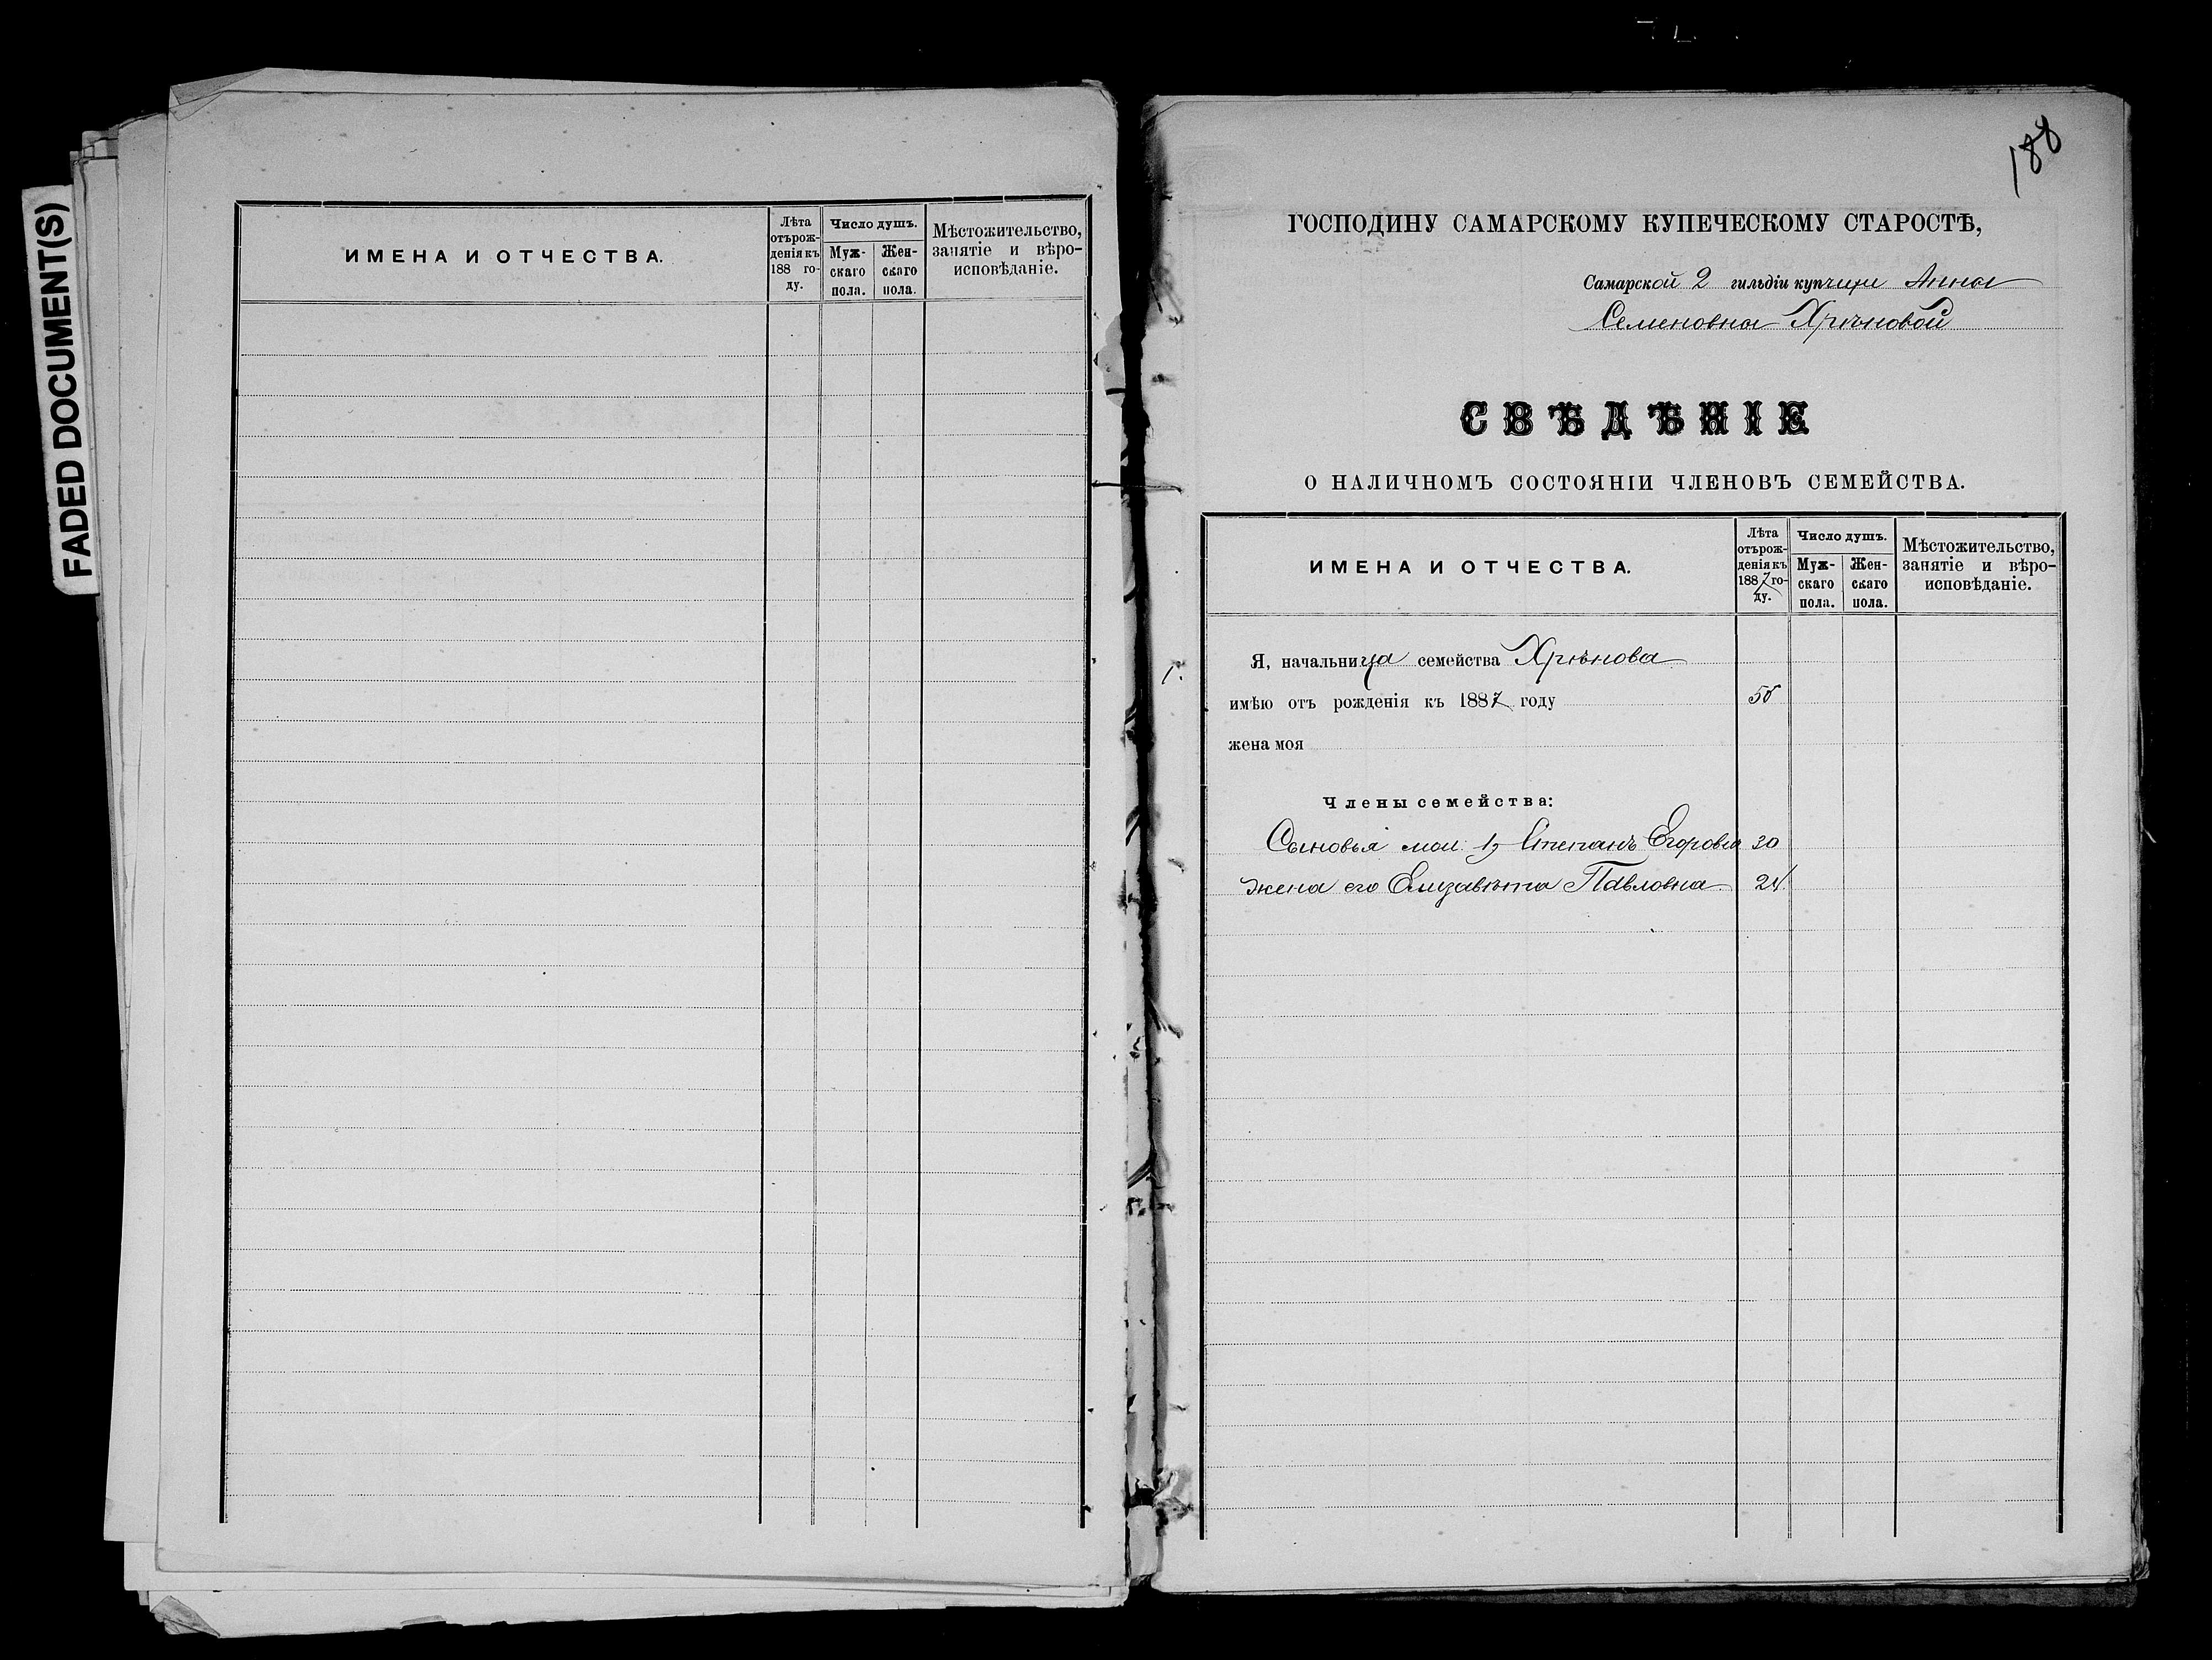 FADED DOCUMENT(S)
ИМЕНА И ОТЧЕСТВА.
Лѣта
отърож-
денія къ
188 го-
ду.
Число душъ.
Муж-
скаго
пола.
Жен-
скаго
пола.
Мѣстожительство,
занятіе и вѣро-
исповѣданіе.
188
ГОСПОДИНУ САМАРСКОМУ КУПЕЧЕСКОМУ СТАРОСТѢ,
Самарской 2 гильдіи купчихи Анны
Семеновны Хрѣновой
СВѢДѢНІЕ
О НАЛИЧНОМЪ СОСТОЯНІИ ЧЛЕНОВЪ СЕМЕЙСТВА.
ИМЕНА И ОТЧЕСТВА.
Лѣта
отърож-
денія къ
1887 го-
ду.
Число душъ.
Муж-
скаго
пола.
Жен-
скаго
пола.
Мѣстожительство,
занятіе и вѣро-
исповѣданіе.
1.
Я, начальница семейства Хрѣнова
имѣю отъ рожденія къ 1887 году
жена моя
Члены семейства:
Сыновья мои: 1, Степанъ Егоровъ 30
жена его Елизавѣта Павловна 24